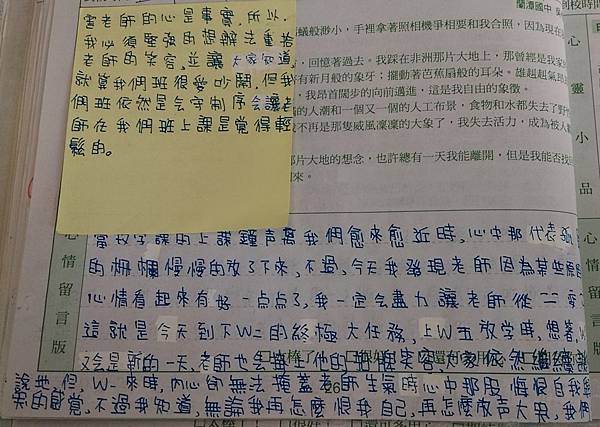 蘭潭國中
害老師的心是事實。所以，
我必須堅強的想辦法重拾
老師的笑容，並讓大家知道，
就算我們班很愛吵鬧，但我
們班依然是会守制序会讓老
師在我們班上課是覺得輕
鬆的。
蟻般渺小，手裡拿著照相機爭相要和我合照，因為現在
，回憶著過去。我踩在非洲那片大地上，那曾經是我
有新月般的象牙；擺動著芭蕉扇般的耳朵。雄赳赳氣
，我昂首闊步的向前邁進，這是我自由的象徵。
的人潮和一個又一個的人工布景，食物和水都失去了野
不再是那隻威風凜凜的大象了，我失去活力，成為被人
那片大地的想念，也許總有一天我能離開，但是我能否找
來。
心靈小品
心情留言版
心情留言版
當數學課的上課鐘声離我們愈來愈近時，心中那代表
的柵欄慢慢的放了下來，不過，今天我發現老師因為某些
心情看起來有好一点点了，我一定会盡力讓老師從
這就是今天到下W二的終極大任務，上W五放學時，想著，
又会是新的一天，老師也会
說些，但，W一來時，內心卻無法掩蓋老師生氣時心中那股悔恨自我
的感覺，不過我知道，無論我再怎麼恨我自己，再怎麼放声大哭，我們